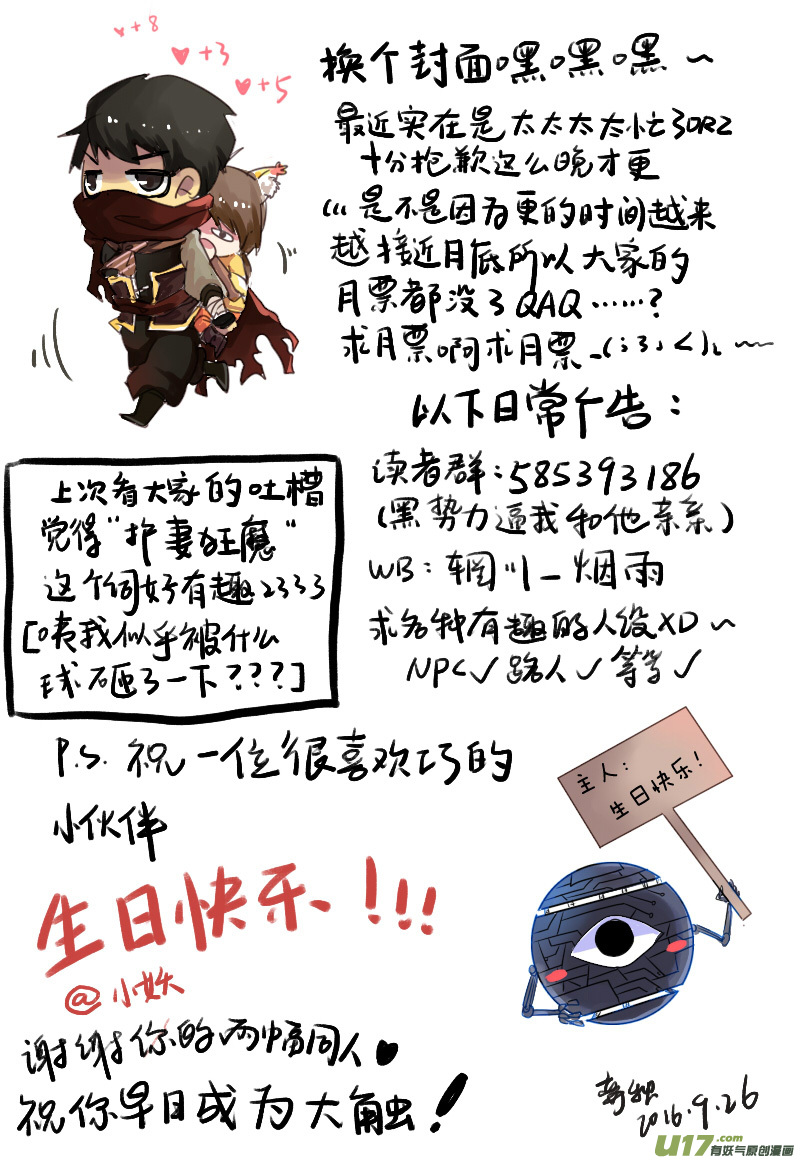 +8
+3
+5
换个封面嘿嘿嘿～
最近实在是太太太太忙了ORZ
十分抱歉这么晚才更
(((是不是因为更的时间越来
越接近月底所以大家的
月票都没了QAQ……?
求月票啊求月票_(:3」∠)_～
以下日常广告：
读者群：585393186
(黑势力逼我和他亲亲)
WB：辋川_烟雨
求各种有趣的人设XD～
NPC✓路人✓等等✓
上次看大家的吐槽
觉得“护妻狂魔”
这个词好有趣2333
[咦我似乎被什么
球砸了一下???]
P.S. 祝一位很喜欢巧的
小伙伴
生日快乐！！！
@小妖
谢谢你的两幅同人♥
祝你早日成为大触！
主人：
生日快乐！
2016.9.26
U17.com
有妖气原创漫画